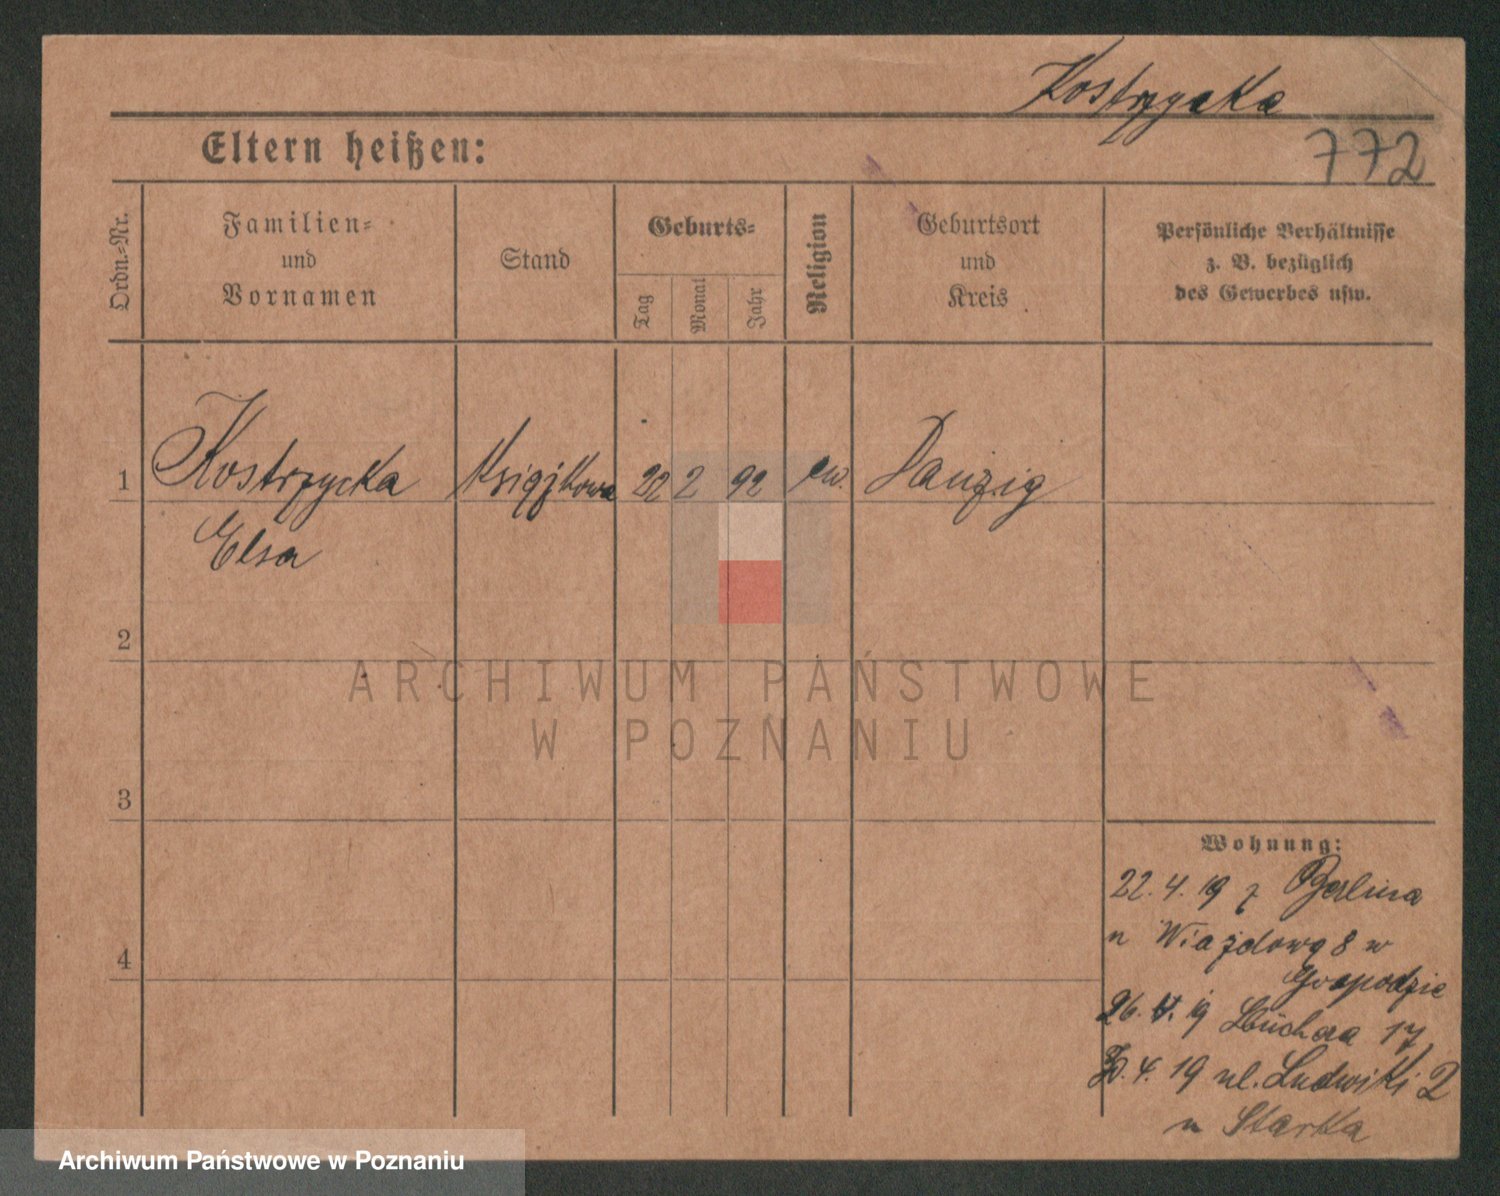 Kostrzycka
772
Eltern heißen:
Ordn.-Nr.
Familien-
und
Vornamen
Stand
Geburts-
Tag
Monat
Jahr
Religion
Geburtsort
und
Kreis
Persönliche Verhältnisse
z. B. bezüglich
des Gewerbes usw.
1 Kostrzycka Książkowa 22 2 92 ew. Danzig
Elsa
2
3
4
Wohnung:
22.4.19 z Berlina
n Wiazdową 8 w
Gospodzie
26.4.19 Blüchera 17
30.4.19 ul. Ludwiki 2
u Starka
ARCHIWUM PAŃSTWOWE
W POZNANIU
Archiwum Państwowe w Poznaniu